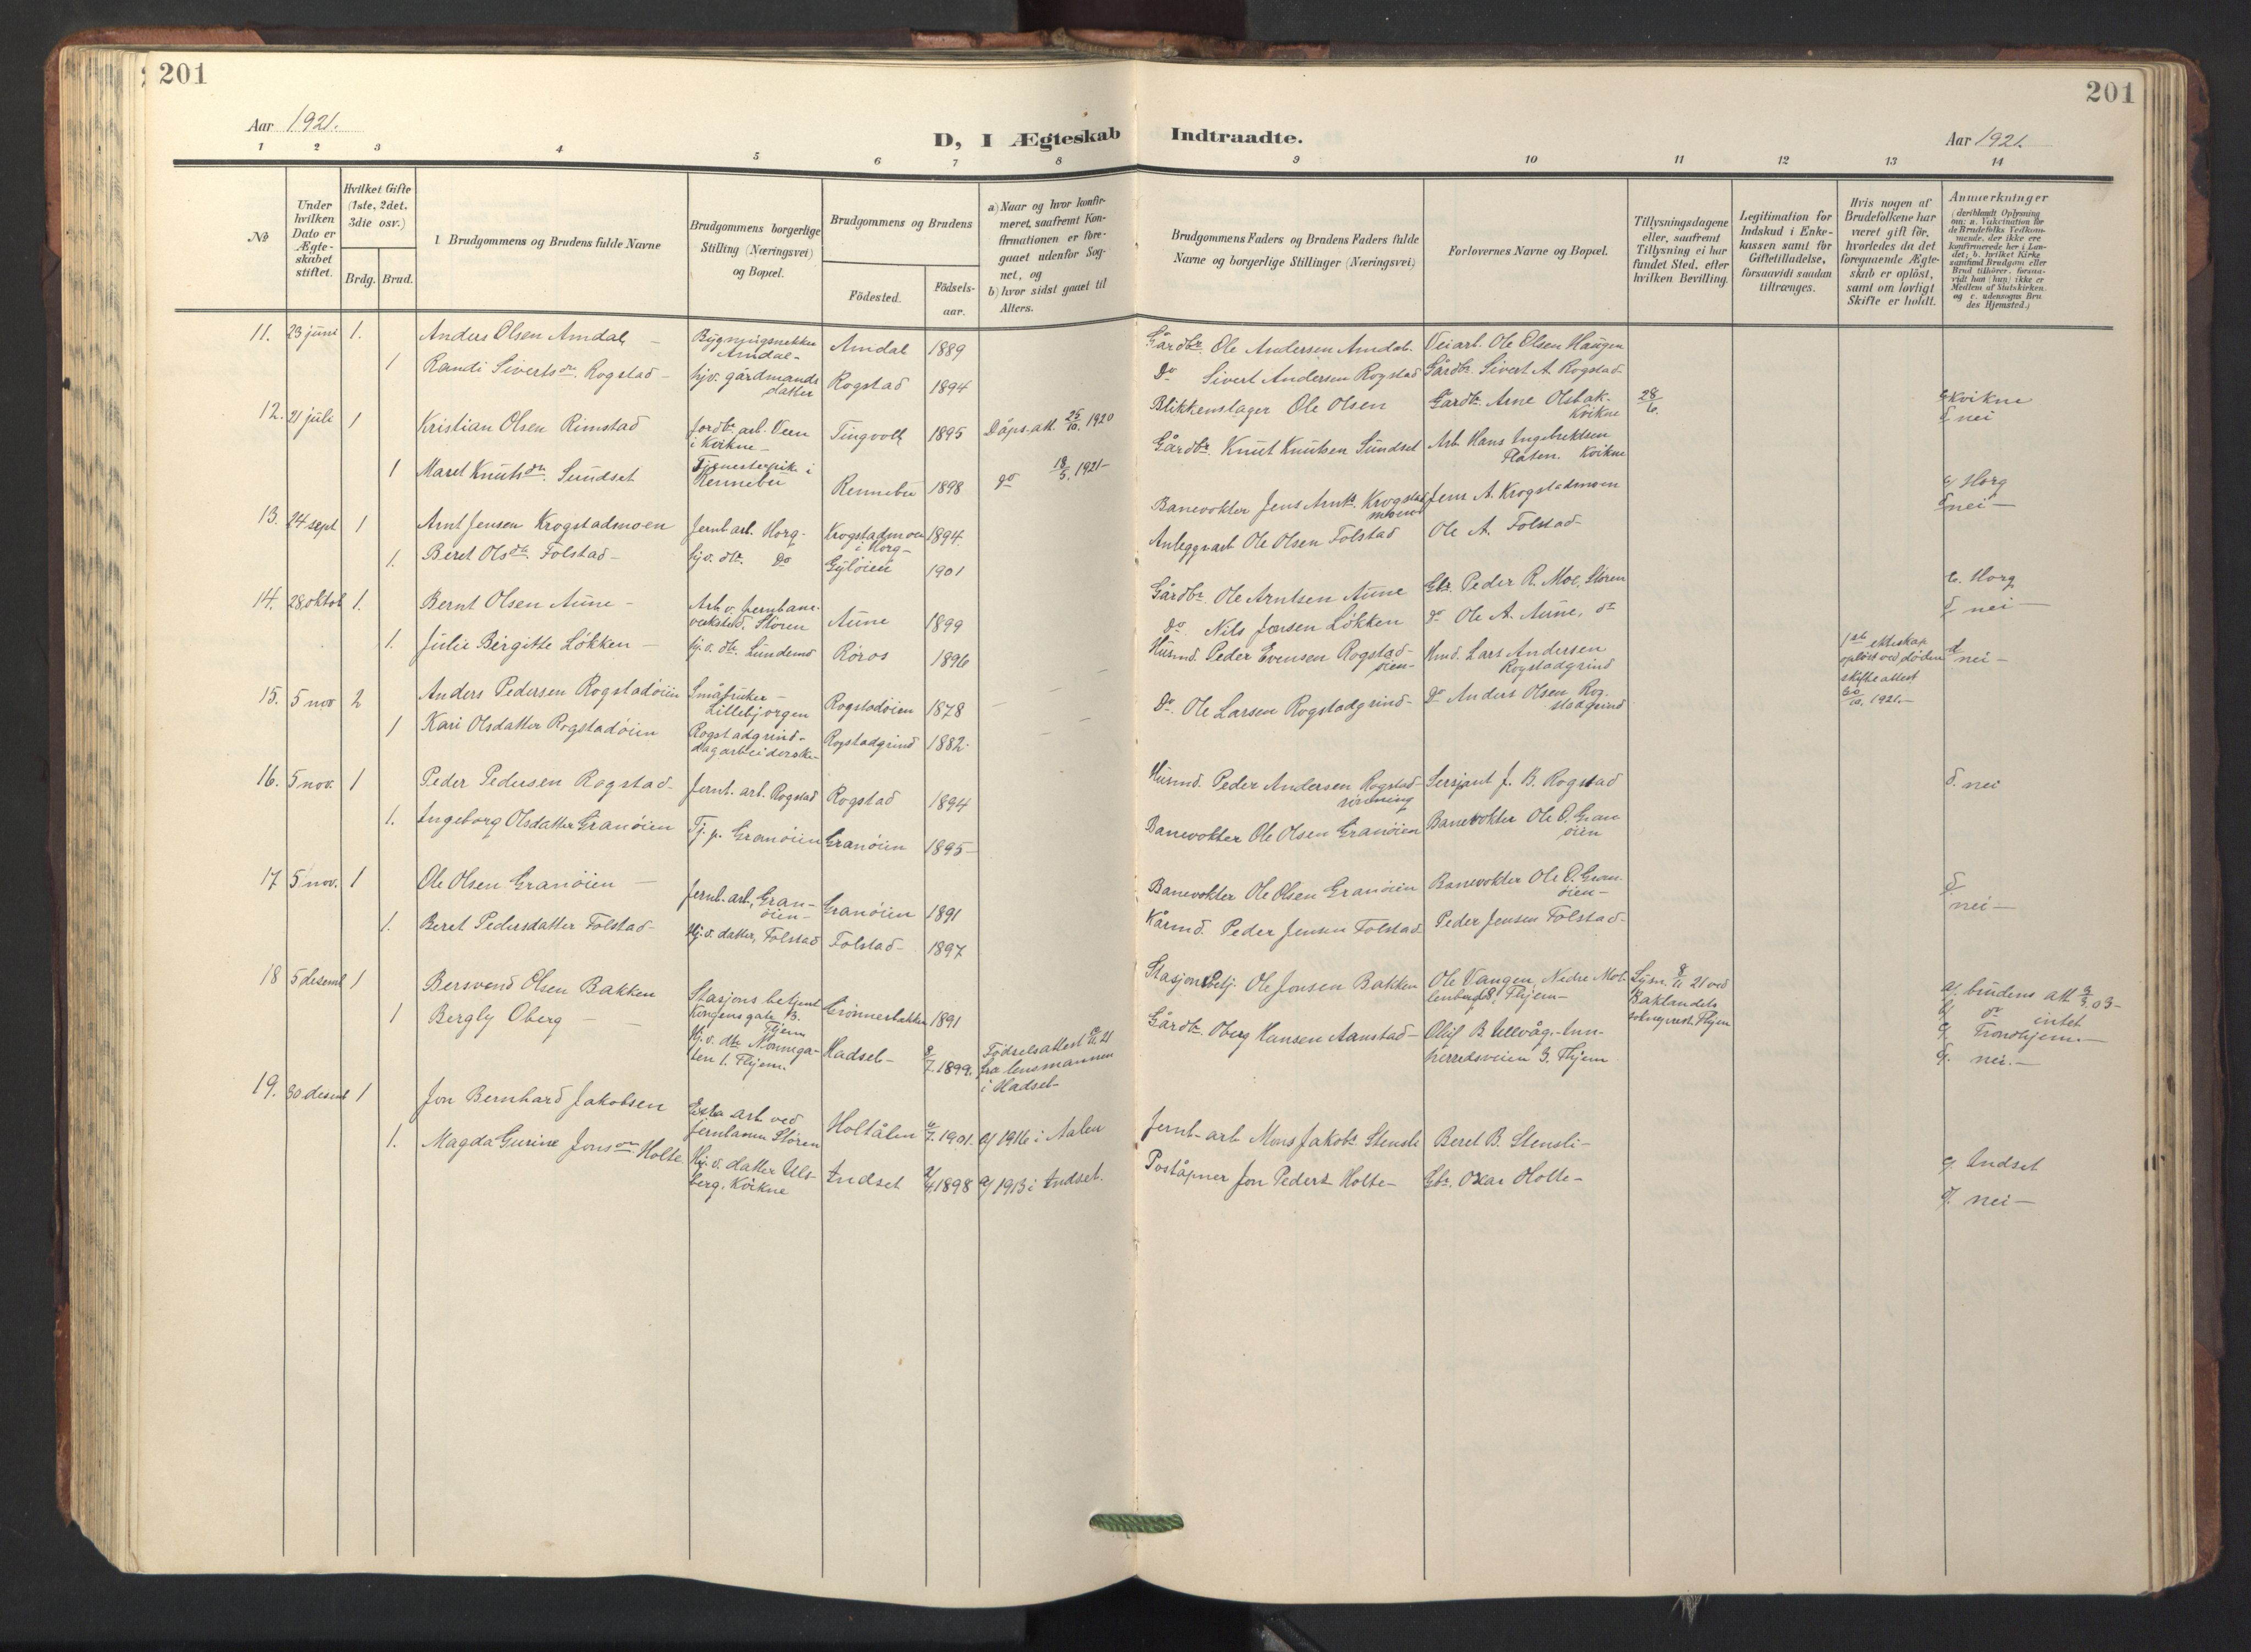 201
201
Aar 1921.
D, I Ægteskab Indtraadte.
Aar 1921.
1 2 3 4 5 6 7 8 9 10 11 12 13 14
No
Under hvilken Dato er Ægteskabet stiftet.
Hvilket Gifte (1ste, 2det, 3die osv.)
Brdg. Brud.
1. Brudgommens og Brudens fulde Navne
Brudgommens borgerlige Stilling (Næringsvei) og Bopæl.
Brudgommens og Brudens
Födested.
Födselsaar.
a) Naar og hvor konfirmeret, saafremt Konfirmationen er foregaaet udenfor Sognet, og
b) hvor sidst gaaet til Alters.
Brudgommens Faders og Brudens Faders fulde Navne og borgerlige Stillinger (Næringsvei)
Forlovernes Navne og Bopæl.
Tillysningsdagene eller, saafremt Tillysning ei har fundet Sted, efter hvilken Bevilling.
Legitimation for Indskud i Enkekassen samt for Giftetilladelse, forsaavidt saadan tiltrænges.
Hvis nogen af Brudefolkene har været gift för, hvorledes da det foregaaende Ægteskab er oplöst, samt om lovligt Skifte er holdt.
Anmærkninger
(deriblandt Oplysning om: a. Vakcination for de Brudefolks Vedkommende, der ikke ere konfirmerede her i Landet; b. hvilket Kirkesamfund Brudgom eller Brud tilhörer, forsaavidt han (hun) ikke er Medlem af Statskirken, og c. udensogns Brudes Hjemsted.)
11. 23 juni 1. Anders Olsen Amdal Bygningsnekker Amdal- Amdal 1889 Gårdbr. Ole Andersen Amdal. Veiarb. Ole Olsen Haugen
1 Randi Sivertsdtr. Rogstad- hjv. gårdmands datter Rogstad 1894 Do Sivert Andersen Rogstad Gårdbr. Sivert A. Rogstad-
12. 21 juli 1 Kristian Olsen Rimstad jordbr. arb. Veen i Kvikne- Tingvoll 1895 Dåps.att. 25/10. 1920 Blikkenslager Ole Olsen Gårdbr. Arne Olsbak- Kvikne 28/6. c Kvikne
d nei
1 Maret Knutsdtr. Sundset Tjenestepike i Rennebu Rennebu 1898 do 18/5. 1921- Gårdbr. Knut Knutsen Sundset Arb Hans Ingebrektsen Platen. Kvikne
13. 24 sept 1 Arnt Jensen Krogstadmoen Jernb arb. Horg- Krogstadmoen i Horg- 1894. Banevokter Jens Arnts. Krogstadmoen Jens A. Krogstadmoen c/ Horg
d nei-
1. Beret Olsdtr Folstad- hjv. dtr. Do Gyløien 1901 Anleggsarb Ole Olsen Folstad Ole A. Folstad-
14. 28 oktob 1. Bernt Olsen Aune- Arb v. jernbaneverksted. Støren Aune 1899 Gårdbr. Ole Arntsen Aune Gbr. Peder R. Moe, Støren c. Horg
d nei-
1. Julie Birgitte Løkken- hjv. dtr. Lundemo Røros 1896 do. Nils Jensen Løkken do Ole A. Aune, do
15. 5 nov 2 Anders Pedersen Rogstadøien Småbruker- Lillebjorgen Rogstadøien 1878 Husmd. Peder Evensen Rogstadøien- Hmd. Lars Andersen Rogstadgrind 1ste ekteskap opløst ved døden skifteattest 20/10. 1921.- d nei-
1 Kari Olsdatter Rogstadøien Rogstadgrind- dagarbeiderske- Rogstadgrind 1882. Do. Ole Larsen Rogstadgrind- Do Anders Olsen Rogstadgrind
16. 5 nov. 1 Peder Pedersen Rogstad- jernb. arb. Rogstad Rogstad 1894 Husmd. Peder Andersen Rogstad Sersjant J. B. Rogstad d. nei
1. Ingeborg Olsdatter Granøien Tj. p. Granøien Granøien 1895- Banevokter Ole Olsen Granøien Banevokter Ole O. Granøien
17 5 nov. 1 Ole Olsen Granøien- jernb-arb, Granøien- Granøien 1891 Banevokter Ole Olsen Granøien Banevokter Ole O. Granøien- d. nei-
1. Beret Pedersdatter Folstad- Hj.v. datter, Folstad Folstad- 1897 Kårmd. Peder Jensen Folstad- Peder Jensen Folstad-
18 5 desemb 1 Bersvend Olsen Bakken Stasjons betjent Kongensgate 13. Thjem Grønnesbakken 1891 Stasjonsbetj. Ole Jonsen Bakken Ole Vangen, Nedre Møllenberg 18, Thjem- Lysn. 8/11 21 ved Baklandets sokneprest. Thjem a/ brudens att 3/3 03-
b/ do intet
c/ Trondhjem.-
d. nei.-
1 Bergly Oberg- Hj.v. dtr Nonnegaten 1. Thjem. Hadsel- 8/7. 1899. Fødselsattest fra lensmannen i Hadsel- Gårdbr. Oberg Hansen Aanstad- Oluf B. Ullvåg,-Innherredsveien 3. Thjem
19. 30 desemb 1 Jon Bernhard Jakobsen Extra arb ved jernbanen Støren Holtålen 1901. a/ 1916 i Aalen Jernb-arb Mons Jakobs. Stensli Beret B. Stensli- c. Indset
1. Magda Gurine Jonsdtr Holte Hj.v. datter Ulsberg, Kvikne Indset 1898 a/ 1913 i Indset. Poståpner Jon Peders. Holte- Gbr. Oxar Holte- d. nei-